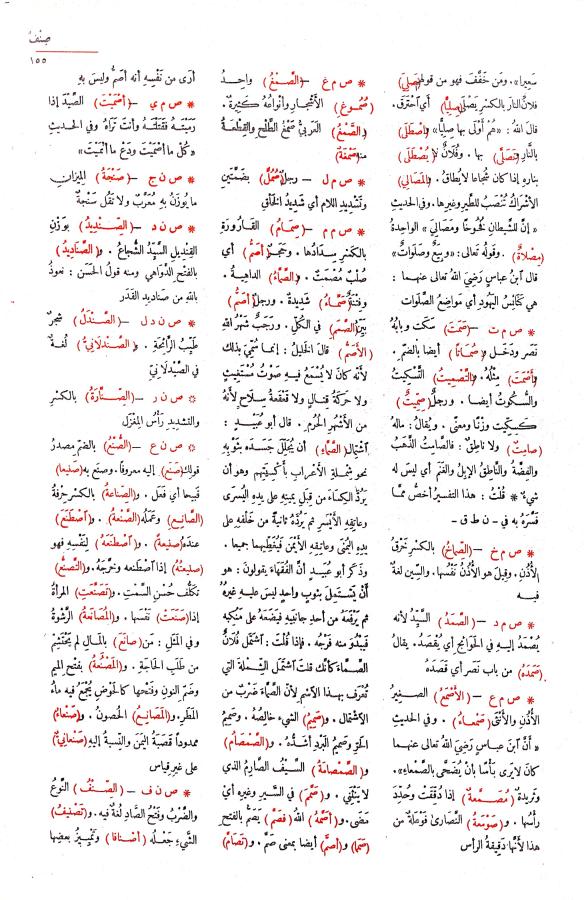 صِنْفٌ
١٥٥
سَعِيرا» . ومَن خَفَّفَ فهو من قولهم (صَلِيَ)
فلانٌ النارَ بالكسْرِ يَصْلَى (صِلِيًّا) أي احْتَرَقَ .
قالَ اللهُ : «هُمْ أَوْلَى بها صِلِيًّا» و(اصْطَلَى)
بالنَّارِ و(تَصَلَّى) بها . وفُلانٌ لا (يُصْطَلَى)
بناره إذا كان شُجاعا لا يُطاقُ . و(المَصَالِي)
الأَشْرَاكُ تُنْصَبُ للطَّيرِ وغيرِها . وفي الحديثِ
« إنَّ للشيطانِ فُخُوخًا ومَصَالِيَ » الواحدةُ
(مِصْلاةٌ) . وقولُه تعالى : «وبِيَعٌ وصَلَواتٌ»
قال ابنُ عباسٍ رَضِيَ اللهُ تعالى عنهما :
هي كَنائِسُ اليَهُودِ أي مَوَاضِعُ الصَّلَوات
* ص م ت – (صَمَتَ) سَكَتَ وبابُهُ
نَصَرَ ودَخَلَ و(صُمَاتًا) أيضا بالضم .
و(أَصْمَتَ) مِثْلُهُ . و(التَّصْمِيتُ) التَّسْكِيتُ
والسُّكُوتُ أيضا . ورجلٌ (صِمِّيتٌ)
كسِكِّيتٍ وزْنًا ومعنًى . ويُقالُ : مالَهُ
(صامِتٌ) ولا ناطِقٌ : فالصامِتُ الذَّهَبُ
والفِضَّةُ والنَّاطِقُ الإبِلُ والغَنَمُ أي ليسَ له
شيءٌ * قُلْتُ : هذا التفسيرُ أَخَصُّ ممَّا
فَسَّرَهُ به في – ن ط ق –
* ص م خ – (الصِّمَاخُ) بالكسرِ خَرْقُ
الأُذُن . وقيلَ هو الأُذُنُ نَفْسُها . والسِّينُ لغةٌ
فيه
* ص م د – (الصَّمَدُ) السَّيِّدُ لأنه
يُصْمَدُ إليهِ في الحَوَائِجِ أي يُقْصَدُ . يقالُ
(صَمَدَهُ) من باب نَصَرَ أي قَصَدَهُ
* ص م ع – (الأَصْمَعُ) الصغيرُ
الأُذُنِ والأُنْثَى (صَمْعاءُ) . وفي الحديثِ
« أنَّ ابنَ عباسٍ رَضِيَ اللهُ تعالى عنهما
كانَ لا يَرَى بأْسًا بأنْ يُضَحَّى بالصَّمْعاءِ» .
وثَرِيدَةٌ (مُصَمَّعَةٌ) إذا دُقِّقَتْ وحُدِّدَ
رأْسُها . و(صَوْمَعَةُ) النَّصَارَى فَوْعَلَةٌ من
هذا لأنَّها دَقِيقةُ الرأس
* ص م غ – (الصَّمْغُ) واحِدُ
(صُمُوغِ) الأَشْجارِ وأنْواعُهُ كَثِيرةٌ .
و(الصَّمْغُ) العَرَبيُّ صَمْغُ الطَّلْحِ والقِطْعَةُ
منه (صَمْغَةٌ)
* ص م ل – رجلٌ (صُمُلٌّ) بضَمَّتَينِ
وتَشْدِيدِ اللامِ أي شَدِيدُ الخَلْقِ
* ص م م – (صِمَامُ) القَارُورَةِ
بالكَسْرِ سِدَادُها . وحَجَرٌ (أَصَمُّ) أي
صُلْبٌ مُصْمَتٌ . و(الصَّمَّاءُ) الداهِيةُ .
وفِتْنَةٌ (صَمَّاءُ) شَدِيدةٌ . ورجلٌ (أَصَمُّ)
بَيِّنُ (الصَّمَمِ) في الكُلِّ . ورَجَبٌ شَهْرُ اللهِ
(الأَصَمُّ) قالَ الخَلِيلُ : إنما سُمِّيَ بذلك
لأنَّهُ كانَ لا يُسْمَعُ فيه صَوْتُ مُسْتَغِيثٍ
ولا حَرَكةُ قِتالٍ ولا قَعْقَعةُ سِلاحٍ لأنَّهُ
من الأَشْهُرِ الحُرُمِ . قالَ أبو عُبَيدٍ :
اشْتِمالُ (الصَّمَّاءِ) أن يُجَلِّلَ جَسَدَه بثَوْبِهِ
نحوَ شِمْلةِ الأَعْرابِ بأَكْسِيَتِهم وهو أن
يَرُدَّ الكِساءَ من قِبَلِ يمينِه على يدِهِ اليُسْرَى
وعاتِقِهِ الأَيْسَرِ ثم يَرُدَّهُ ثانيةً من خَلْفِهِ على
يدِهِ اليُمْنَى وعاتِقِهِ الأَيْمَنِ فيُغَطِّيَهما جميعا .
وذَكَرَ أبو عُبَيدٍ أنَّ الفُقَهاءَ يقولون : هو
أنْ يَشْتَمِلَ بثوبٍ واحدٍ ليسَ عليهِ غيرُهُ
ثم يَرْفَعَهُ من أحدِ جانِبَيهِ فيَضَعَهُ على مَنْكِبِهِ
فيَبْدُوَ منه فَرْجُه . فإذا قُلْتَ : اشْتَمَلَ فُلانٌ
الصَّمَّاءَ كأنَّكَ قلتَ اشْتَمَلَ الشِّمْلةَ التي
تُعْرَفُ بهذا الاسْمِ لأنَّ الصَّمَّاءَ ضَرْبٌ من
الاشْتِمال . و(صَمِيمُ) الشيءِ خالِصُهُ . وصَمِيمُ
الحَرِّ وصَمِيمُ البَرْدِ أَشَدُّهُ . و(الصَّمْصَامُ)
و(الصَّمْصامةُ) السَّيْفُ الصَّارِمُ الذي
لا يَنْثَنِي . و(صَمَّمَ) في السَّيرِ وغيرِه أي
مَضَى . و(أَصَمَّهُ) اللهُ (فَصَمَّ) يَصَمُّ بالفتحِ
(صَمَمًا) و(أَصَمَّ) أيضا بمعنى صَمَّ . و(تَصَامَّ)
أرَى من نَفْسِهِ أنه أَصَمُّ وليسَ به
* ص م ي – (أَصْمَيْتُ) الصَّيْدَ إذا
رَمَيْتَهُ فقَتَلْتَهُ وأنتَ تَرَاهُ وفي الحديثِ
«كُلْ ما أَصْمَيْتَ ودَعْ ما أَنْمَيْتَ»
* ص ن ج – (صَنْجَةُ) المِيزانِ
ما يُوزَنُ به مُعَرَّبٌ ولا تَقُلْ سَنْجةٌ
* ص ن د – (الصِّنْدِيدُ) بوَزْنِ
القِنْدِيلِ السيِّدُ الشُّجاعُ . و(الصَّنادِيدُ)
بالفتحِ الدَّوَاهِي ومنه قولُ الحَسَنِ : نعوذُ
باللهِ من صَنادِيدِ القَدَر
* ص ن د ل – (الصَّنْدَلُ) شجرٌ
طَيِّبُ الرَّائِحَةِ . و(الصَّنْدَلانِيُّ) لُغةٌ
في الصَّيْدَلانِيّ
* ص ن ر – (الصِّنَّارَةُ) بالكسْرِ
والتشديدِ رَأْسُ المِغْزَل
* ص ن ع – (الصُّنْعُ) بالضم مصدرُ
قولِك (صَنَعَ) إليه معروفًا . وصنع به (صَنِيعا)
قبيحا أي فَعَلَ . و(الصِّناعةُ) بالكسرِ حِرْفةُ
(الصانِعِ) وعَمَلُه (الصَّنْعةُ) . و(اصْطَنَعَ)
عندَه (صَنِيعةً) . و(اصْطَنَعَهُ) لِنَفْسِهِ فهو
(صَنِيعَتُهُ) إذا اصْطَنَعَهُ وخَرَّجَهُ . و(التَّصَنُّعُ)
تكلُّفُ حُسْنِ السَّمْتِ . و(تَصَنَّعَتِ) المرأةُ
إذا (صَنَعَتْ) نَفْسَها . و(المُصَانَعةُ) الرِّشْوةُ
وفي المَثَلِ : مَن (صانَعَ) بالمالِ لم يَحْتَشِمْ
من طَلَبِ الحاجَةِ . و(المَصْنَعَةُ) بفتحِ الميمِ
وضَمِّ النونِ وفَتْحِها كالحَوْضِ يُجْمَعُ فيه ماءُ
المَطَرِ . و(المَصَانِعُ) الحُصونُ . و(صَنْعاءُ)
ممدوداً قَصَبةُ اليَمَنِ والنِّسبةُ إليه (صَنْعانِيٌّ)
على غيرِ قياس
* ص ن ف – (الصِّنْفُ) النَّوْعُ
والضَّرْبُ وفَتْحُ الصَّادِ لغةٌ فيه . و(تَصْنِيفُ)
الشَّيءِ جَعْلُه (أصْنافا) وتَمْيِيزُ بعضِها